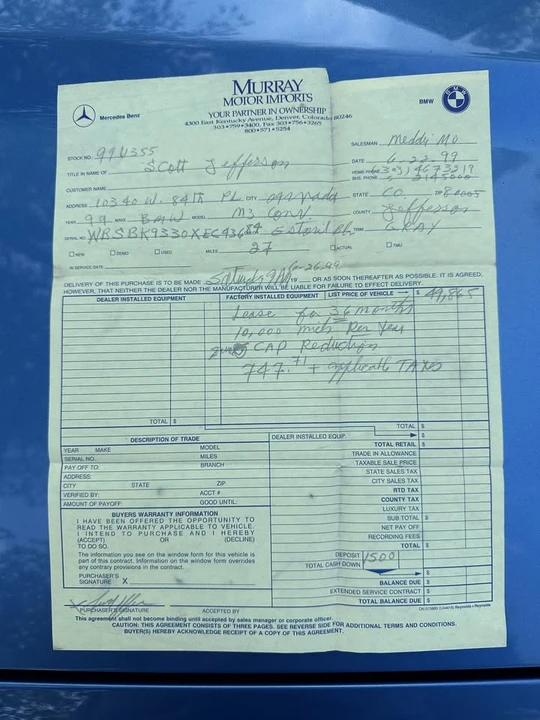 Mercedes Benz
MURRAY
MOTOR IMPORTS
YOUR PARTNER IN OWNERSHIP
4300 East Kentucky Avenue, Denver, Colorado 80246
303•759•3400, Fax 303•756•3265
800•571•5254
BMW
SALESMAN Meddi Mo
STOCK NO. 99U355
DATE 6-22-99
TITLE IN NAME OF Scott Jefferson
HOME PHONE (303) 4673219
BUS. PHONE
CUSTOMER NAME
ADDRESS 10340 W. 84TH PL CITY Arvada STATE CO ZIP 80005
YEAR 99 MAKE BMW MODEL M3 Conv. COUNTY Jefferson
SERIAL NO. WBSBK9330XEC43684 Estoril Bl TRIM GRAY
NEW DEMO USED MILES 27 ACTUAL TMU
IN SERVICE DATE
DELIVERY OF THIS PURCHASE IS TO BE MADE Saturday 6-26-99 19 OR AS SOON THEREAFTER AS POSSIBLE. IT IS AGREED,
HOWEVER, THAT NEITHER THE DEALER NOR THE MANUFACTURER WILL BE LIABLE FOR FAILURE TO EFFECT DELIVERY.
DEALER INSTALLED EQUIPMENT FACTORY INSTALLED EQUIPMENT LIST PRICE OF VEHICLE $ 49,865
Lease for 36 months
10,000 miles Per Year
CAP Reduction
747.71 + applicable TAXES
TOTAL $ TOTAL $
DESCRIPTION OF TRADE DEALER INSTALLED EQUIP. $
TOTAL RETAIL $
YEAR MAKE MODEL
TRADE IN ALLOWANCE
SERIAL NO. MILES
TAXABLE SALE PRICE
PAY OFF TO: BRANCH
STATE SALES TAX
ADDRESS:
CITY SALES TAX
CITY STATE ZIP
RTD TAX
VERIFIED BY: ACCT #
COUNTY TAX
AMOUNT OF PAYOFF GOOD UNTIL:
LUXURY TAX
BUYERS WARRANTY INFORMATION
SUB TOTAL $
I HAVE BEEN OFFERED THE OPPORTUNITY TO
READ THE WARRANTY APPLICABLE TO VEHICLE.
NET PAY OFF
I INTEND TO PURCHASE AND I HEREBY
RECORDING FEES
(ACCEPT) OR (DECLINE)
TO DO SO.
TOTAL $
The information you see on the window form for this vehicle is
part of this contract. Information on the window form overrides
any contrary provisions in the contract.
DEPOSIT 1500
TOTAL CASH DOWN
PURCHASER'S
SIGNATURE X
BALANCE DUE $
EXTENDED SERVICE CONTRACT $
TOTAL BALANCE DUE $
PURCHASER'S SIGNATURE ACCEPTED BY
This agreement shall not become binding until accepted by sales manager or corporate officer.
CAUTION: THIS AGREEMENT CONSISTS OF THREE PAGES. SEE REVERSE SIDE FOR ADDITIONAL TERMS AND CONDITIONS.
BUYER(S) HEREBY ACKNOWLEDGE RECEIPT OF A COPY OF THIS AGREEMENT.